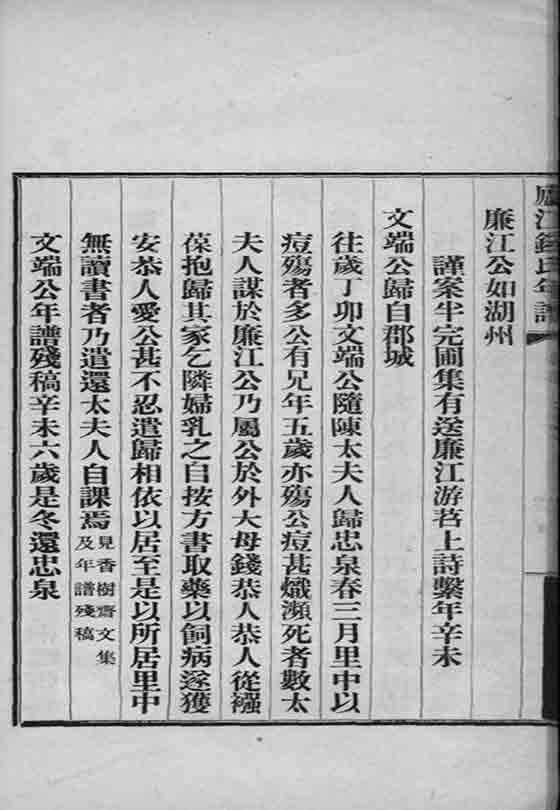 廬江錢氏年譜
廉江公如湖州
謹案半完圃集有送廉江游苕上詩繫年辛未
文端公歸自郡城
往歲丁卯文端公隨陳太夫人歸忠泉春三月里中以
痘殤者多公有兄年五歲亦殤公痘甚熾瀕死者數太
夫人謀於廉江公乃屬公於外大母錢恭人恭人從襁
葆抱歸其家乞隣婦乳之自按方書取藥以飼病遂獲
安恭人愛公甚不忍遣歸相依以居至是以所居里中
無讀書者乃遣還太夫人自課焉見香樹齋文集及年譜殘稿
文端公年譜殘稿辛未六歲是冬還忠泉